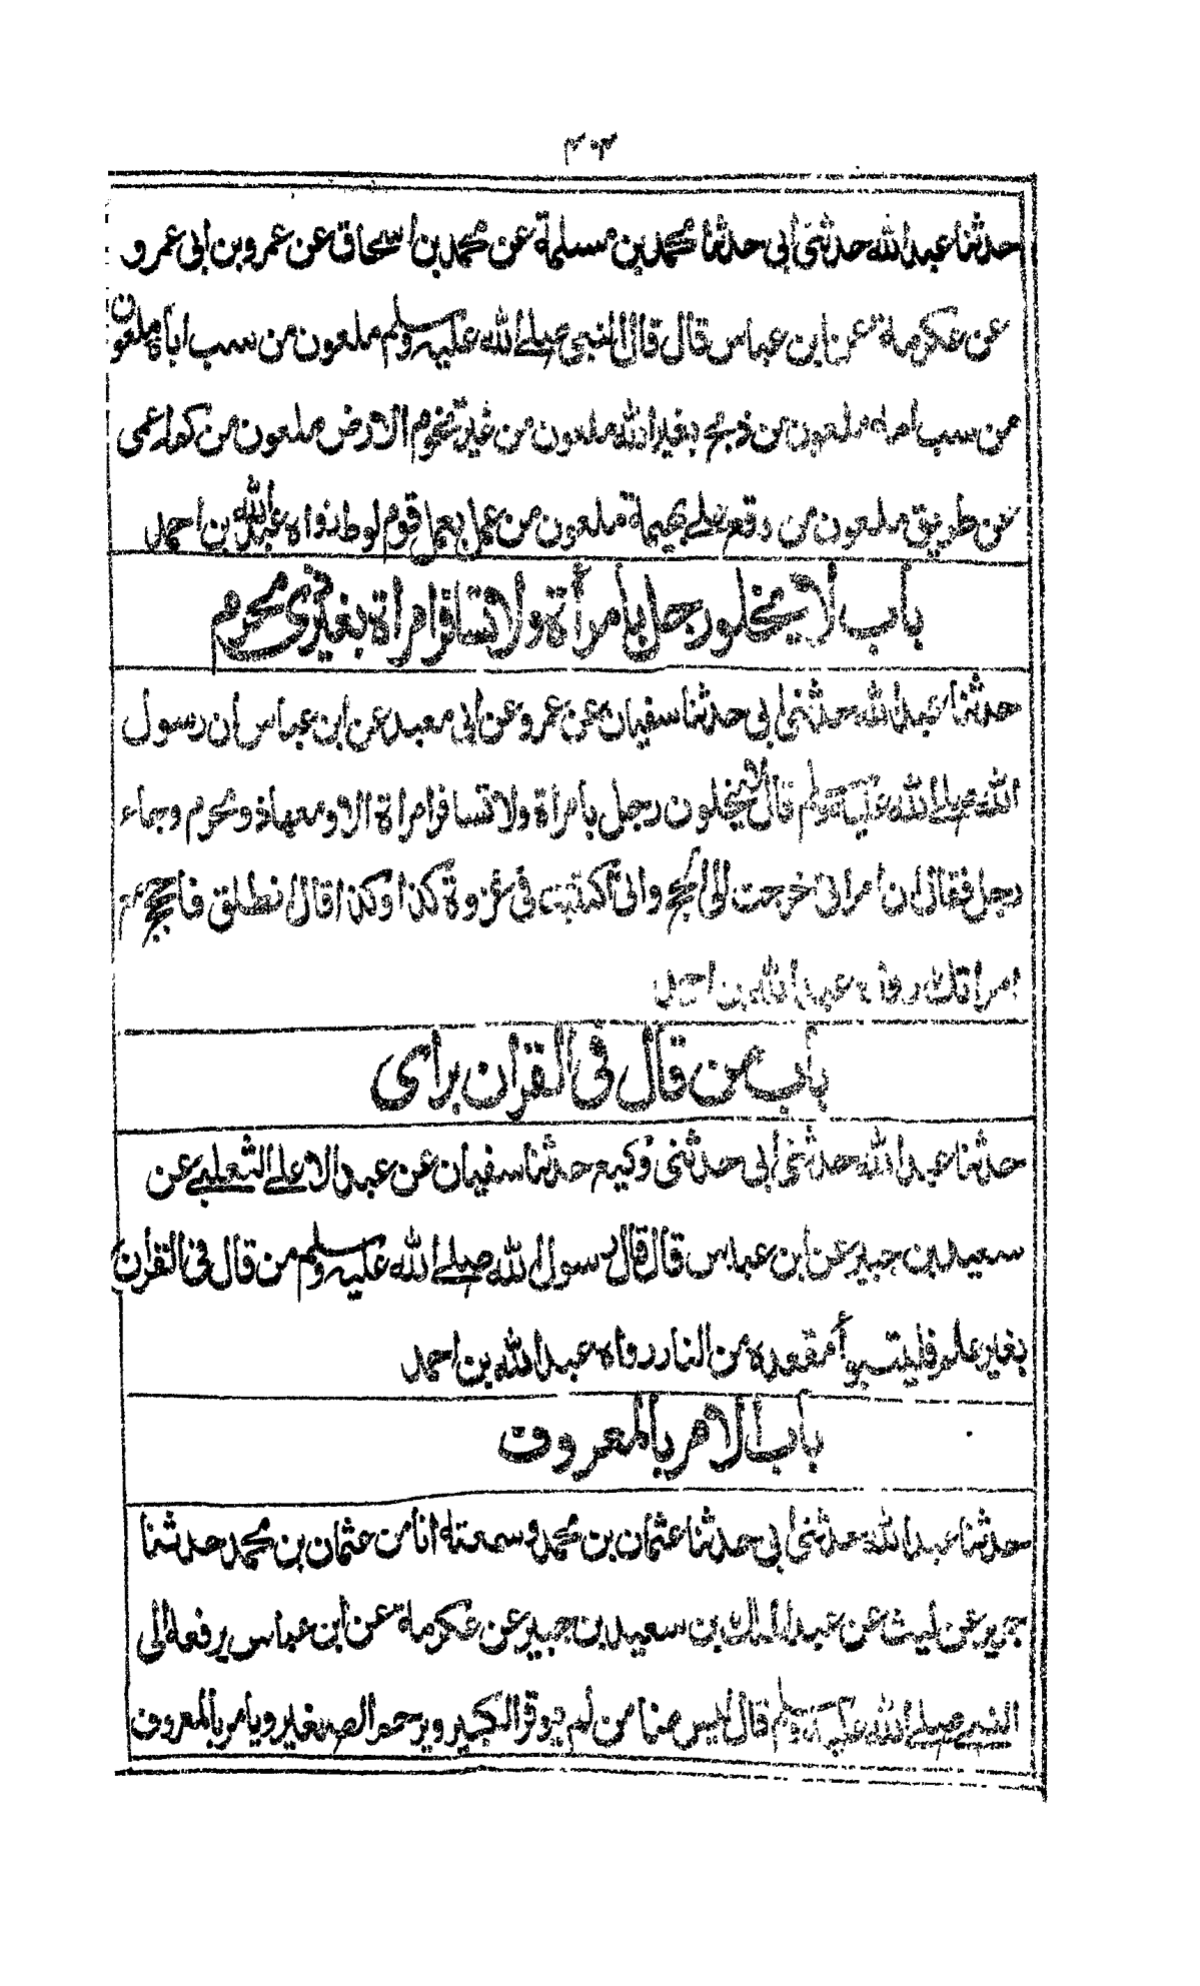 ٤٠٣
حدثنا عبد الله حدثني ابي حدثنا محمد بن مسلمة عن محمد بن اسحاق عن عمرو بن ابي عمرو
عن عكرمة عن ابن عباس قال قال النبي صلے الله عليه وسلم ملعون من سب اباه ملعون
من سب امه ملعون من ذبح بغير الله ملعون من غير تخوم الارض ملعون من كمه اعمى
عن طريق ملعون من وقع علے بهيمة ملعون من عمل بعمل قوم لوط رواه عبد الله بن احمد
باب لا يخلو رجل بامرأة ولا تسافر امراة بغير ذي محرم
حدثنا عبد الله حدثني ابي حدثنا سفيان عن عمرو عن ابي معبد عن ابن عباس ان رسول
الله صلے الله عليه وسلم قال لا يخلون رجل بامراة ولا تسافر امراة الا ومعها ذو محرم وجاء
رجل فقال ان امراتي خرجت الى الحج واني اكتتبت في غزوة كذا وكذا قال انطلق فاحجج مع
امراتك رواه عبد الله بن احمد
باب من قال في القران براى
حدثنا عبد الله حدثني ابي حدثني وكيع حدثنا سفيان عن عبد الاعلے الثعلبے عن
سعيد بن جبير عن ابن عباس قال قال رسول الله صلے الله عليه وسلم من قال في القران
بغير علم فليتبوأ مقعده من النار رواه عبد الله بن احمد
باب الامر بالمعروف
حدثنا عبد الله حدثني ابي حدثنا عثمان بن محمد وسمعته انا من عثمان بن محمد حدثنا
جرير عن ليث عن عبد الملك بن سعيد بن جبير عن عكرمة عن ابن عباس يرفعه الى
النبي صلے الله عليه وسلم قال ليس منا من لم يوقر الكبير ويرحم الصغير ويامر بالمعروف